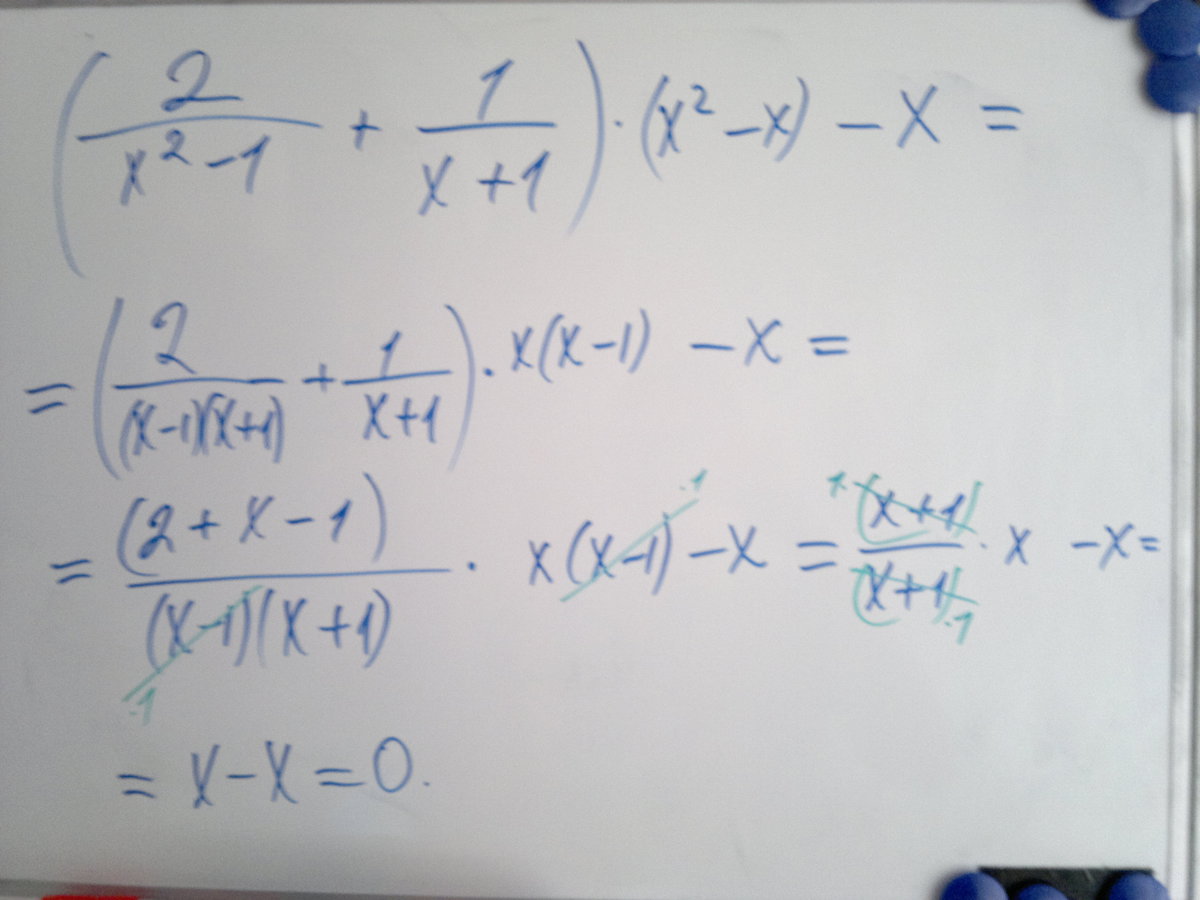 (2/(x²-1) + 1/(x+1)) · (x²-x) - x =
= (2/((x-1)(x+1)) + 1/(x+1)) · x(x-1) - x =
= (2+x-1)/((x-1)(x+1)) · x(x-1) - x = (x+1)/(x+1) · x - x =
= x-x = 0.